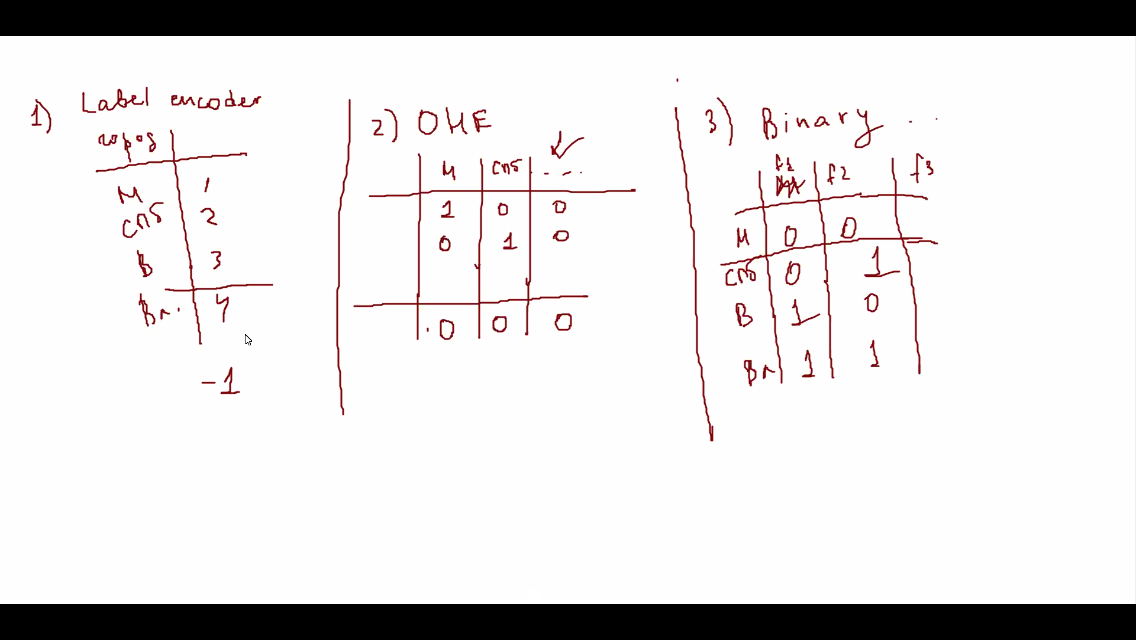 1) Label encoder
город
М 1
СПб 2
В 3
Вл. 4
-1
2) OHE
М СПб ...
1 0 0
0 1 0
0 0 0
3) Binary ...
f1 f2 f3
М 0 0
СПб 0 1
В 1 0
Вл 1 1